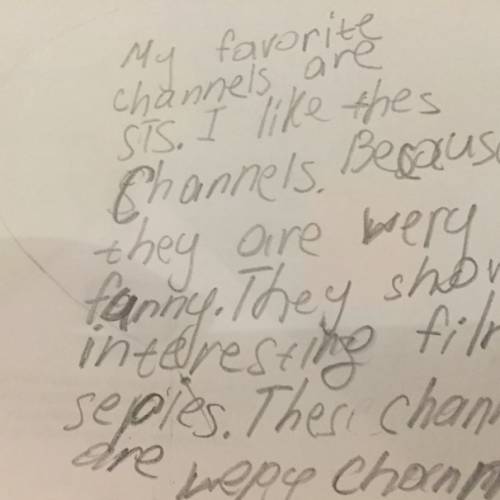 My favorite
channels are
STS. I like thes
Channels. Because
they are wery
fanny. They show
interesting film
sepies. Thes chann
are wepy chann